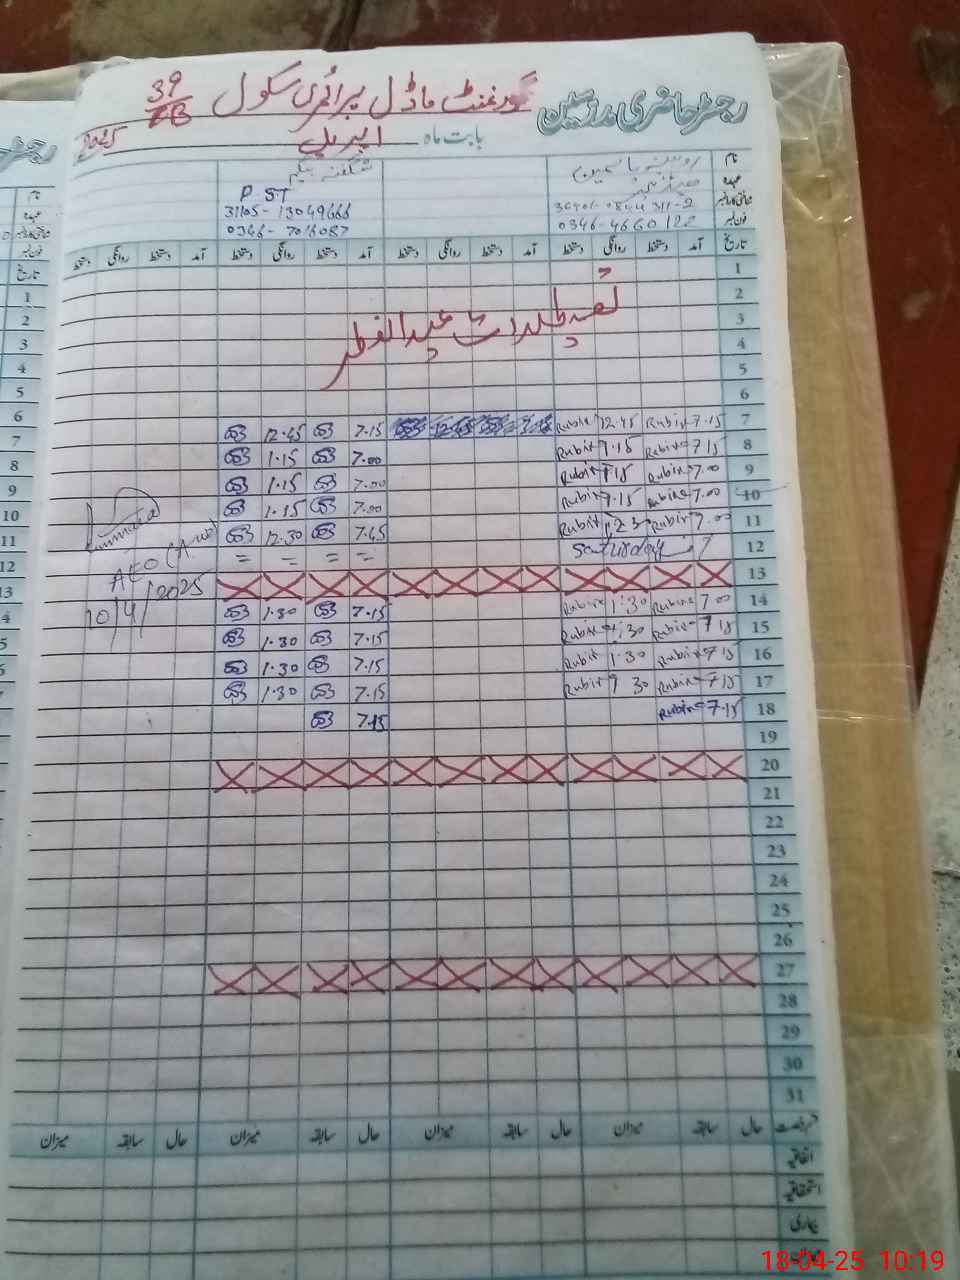 رجسٹر حاضری مدرسین گورنمنٹ ماڈل پرائمری سکول 39
بابت ماہ اپریل 2025
نام روبینہ یاسمین شگفتہ بیگم
عہدہ P S T
شناختی کارڈ نمبر 31105-13049666
فون نمبر 0346-4660122 0346-7016087
تاریخ آمد دستخط روانگی دستخط آمد دستخط روانگی دستخط آمد دستخط روانگی دستخط آمد دستخط روانگی دستخط
1
2
3 تعطیلات عید الفطر
4
5
6
7 7.15 Rubin 12.45 Rubin 7.15 12.45
8 7 15 Rubin 1.15 Rubin 7.00 1.15
9 7.00 Rubin 1.15 Rubin 7.00 1.15
10 7.00 Rubin 1.15 Rubin 7.00 1.15
11 7.00 Rubin Rubin 7.45 12.30
12 Saturday = = = =
AEO
10/4/2025
13
14 7 00 Rubin 1:30 Rubin 7.15 1.30
15 7 15 Rubin 1:30 Rubin 7.15 1.30
16 7 15 Rubin 1 30 Rubin 7.15 1.30
17 7 15 Rubin 1 30 Rubin 7.15 1.30
18 7.15 Rubin 7.15
19
20
21
22
23
24
25
26
27
28
29
30
31
رخصت حال سابقہ میزان حال سابقہ میزان حال سابقہ میزان حال سابقہ میزان
اتفاقیہ
استحقاقیہ
بیماری
18-04-25 10:19